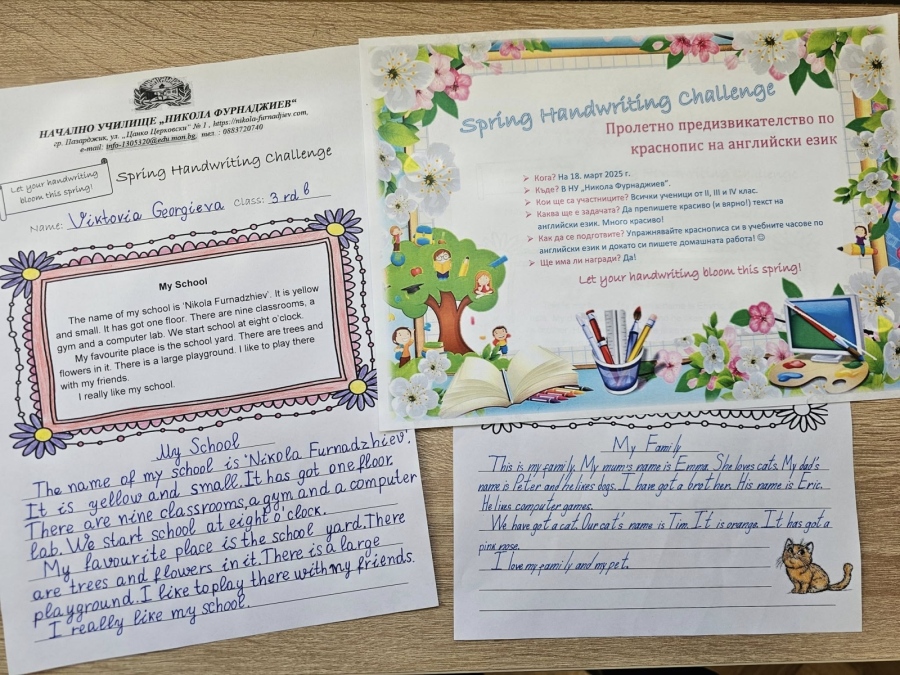 НАЧАЛНО УЧИЛИЩЕ „НИКОЛА ФУРНАДЖИЕВ“
гр. Пазарджик, ул. „Цанко Церковски“ № 1 , https://nikola-furnadjiev.com,
e-mail: info-1305320@edu.mon.bg, тел. : 0883720740
Let your handwriting
bloom this spring!
Spring Handwriting Challenge
Name: Viktoria Georgieva Class: 3 rd б
My School
The name of my school is ‘Nikola Furnadzhiev’. It is yellow
and small. It has got one floor. There are nine classrooms, a
gym and a computer lab. We start school at eight o’clock.
My favourite place is the school yard. There are trees and
flowers in it. There is a large playground. I like to play there
with my friends.
I really like my school.
My School
The name of my school is ‘Nikola Furnadzhiev’.
It is yellow and small. It has got one floor.
There are nine classrooms, a gym and a computer
lab. We start school at eight o’clock.
My favourite place is the school yard. There
are trees and flowers in it. There is a large
playground. I like to play there with my friends.
I really like my school.
Spring Handwriting Challenge
Пролетно предизвикателство по
краснопис на английски език
Кога? На 18. март 2025 г.
Къде? В НУ „Никола Фурнаджиев“.
Кои ще са участниците? Всички ученици от II, III и IV клас.
Каква ще е задачата? Да препишете красиво (и вярно!) текст на
английски език. Много красиво!
Как да се подготвите? Упражнявайте краснописа си в учебните часове по
английски език и докато си пишете домашната работа! ☺
Ще има ли награди? Да!
Let your handwriting bloom this spring!
My Family
This is my family. My mum's name is Emma. She loves cats. My dad's
name is Peter and he likes dogs. I have got a brother. His name is Eric.
He likes computer games.
We have got a cat. Our cat's name is Tim. It is orange. It has got a
pink nose.
I love my family and my pet.